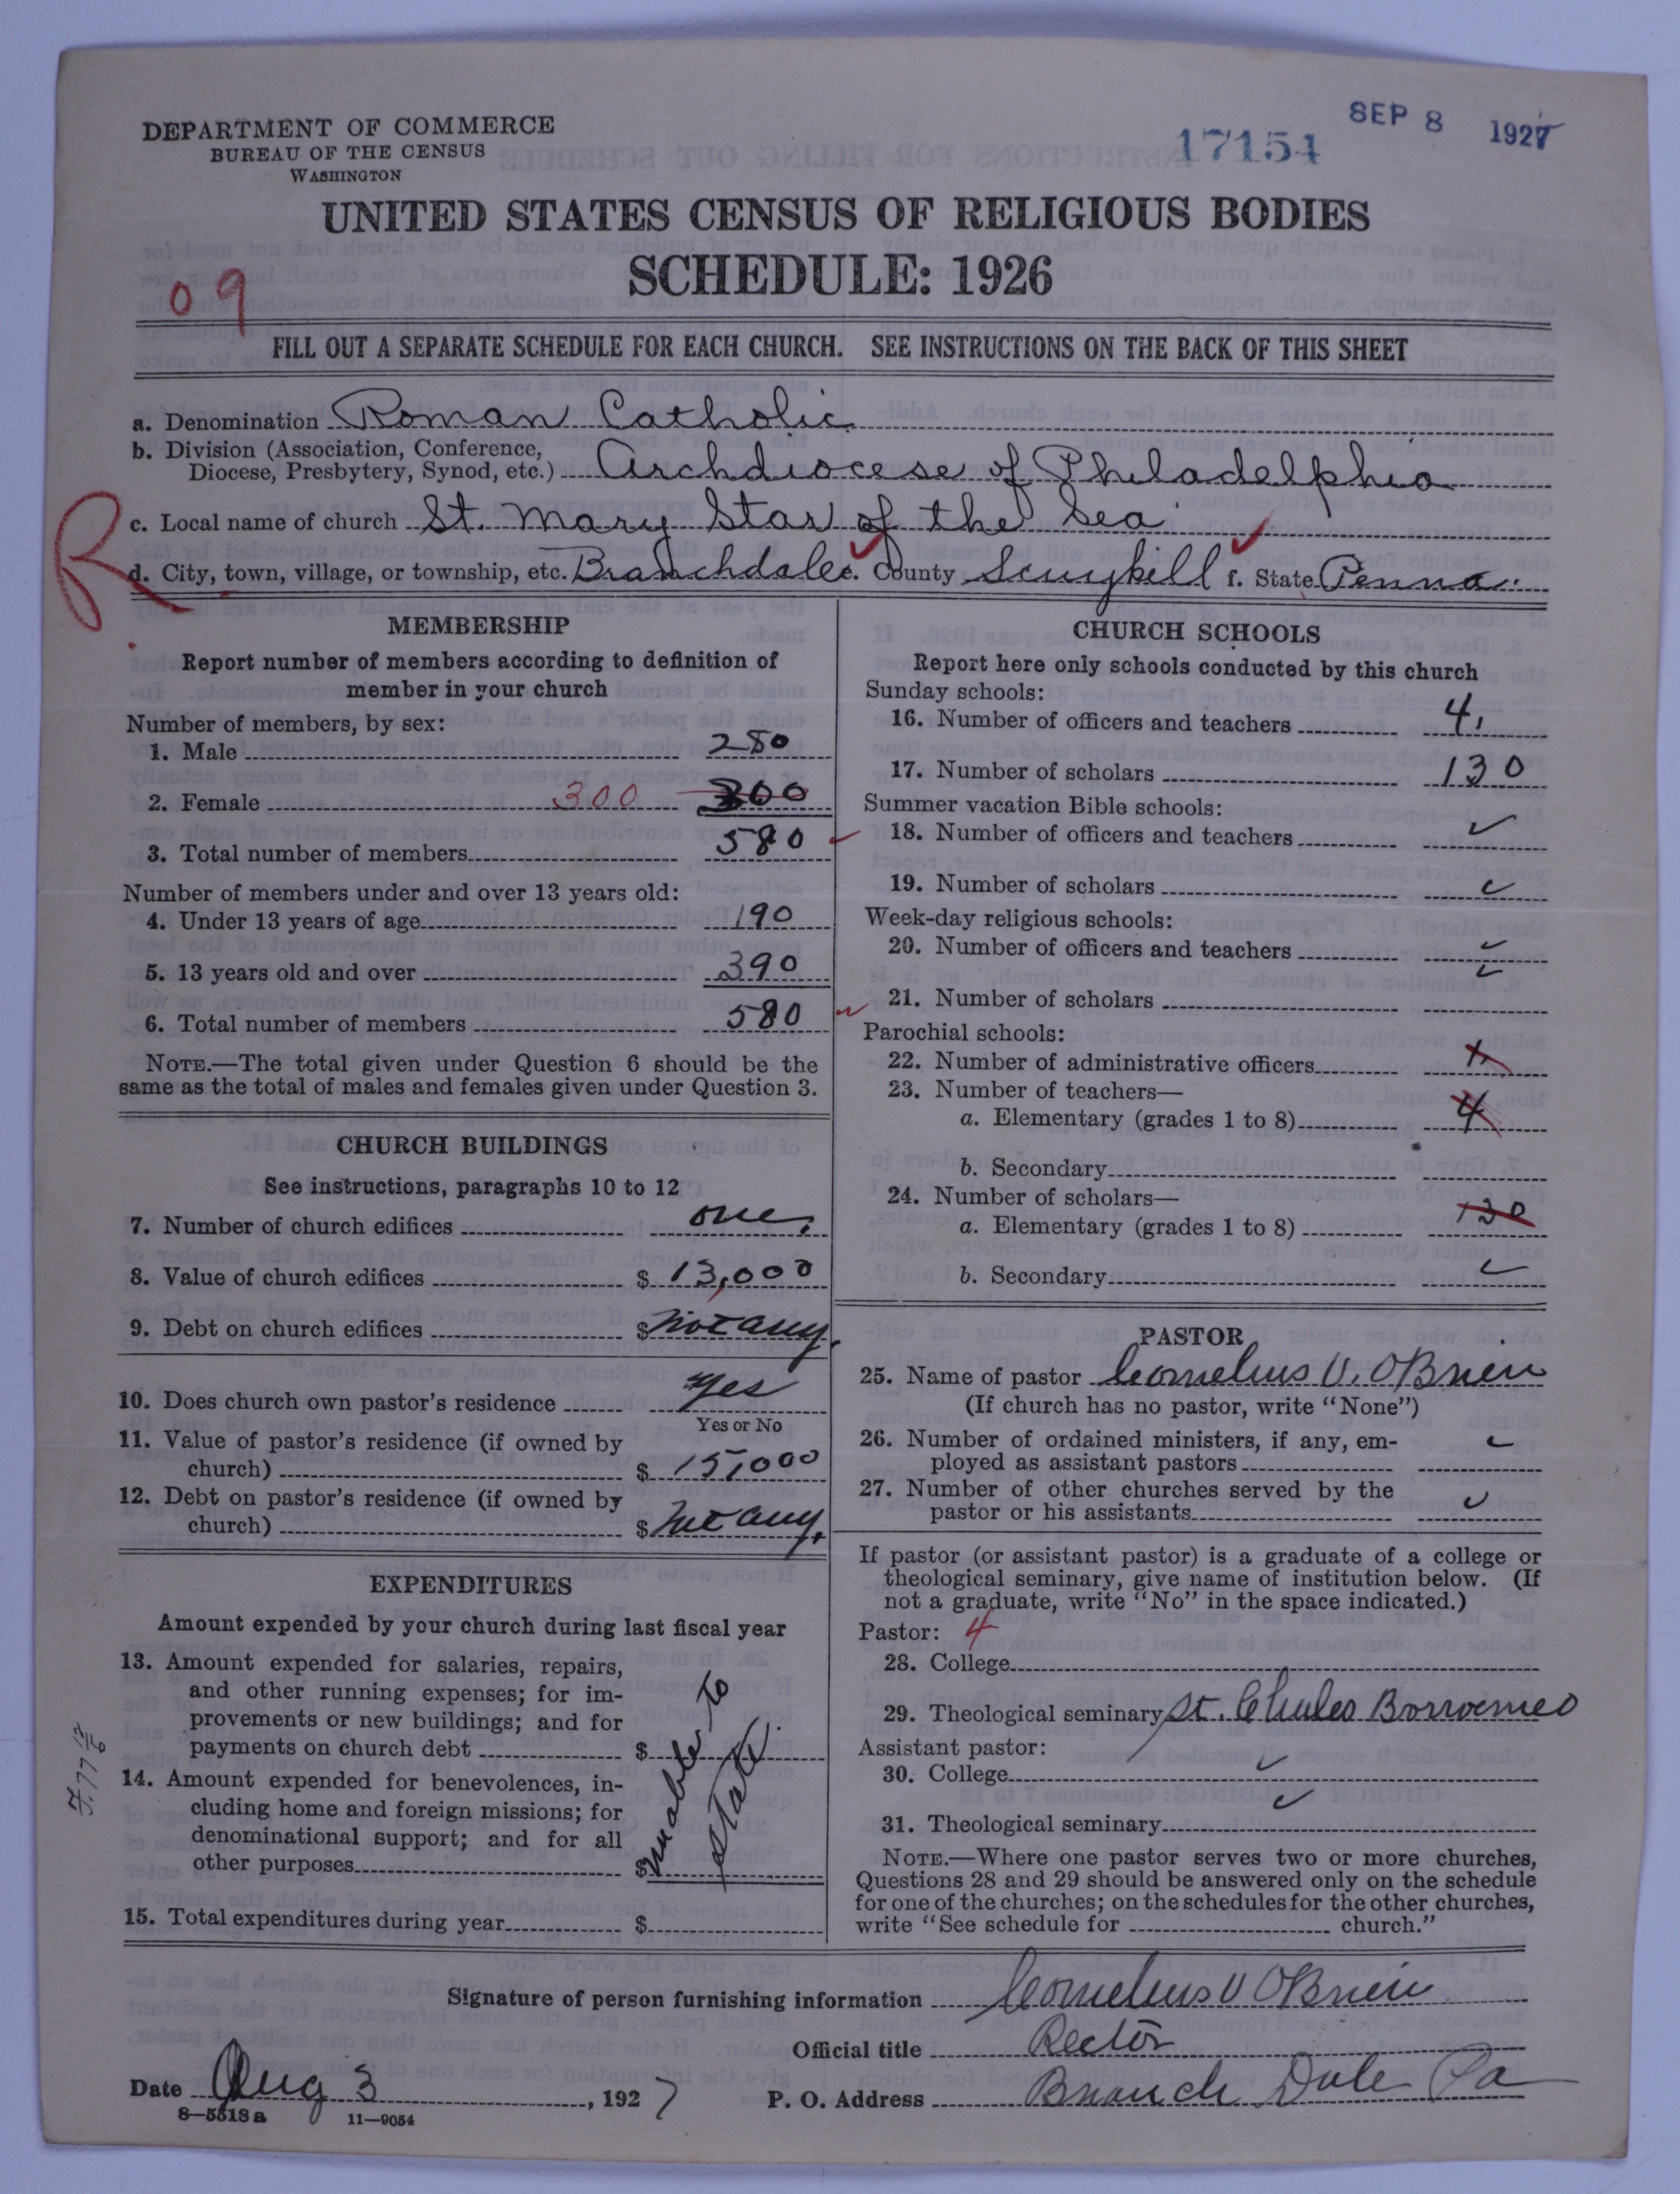 DEPARTMENT OF COMMERCE
BUREAU OF THE CENSUS
WASHINGTON
17154
SEP 8 1927
UNITED STATES CENSUS OF RELIGIOUS BODIES
SCHEDULE: 1926
09
FILL OUT A SEPARATE SCHEDULE FOR EACH CHURCH. SEE INSTRUCTIONS ON THE BACK OF THIS SHEET
a. Denomination Roman Catholic
b. Division (Association, Conference,
Diocese, Presbytery, Synod, etc.) Archdiocese of Philadelphia
c. Local name of church St. Mary Star of the Sea
R
d. City, town, village, or township, etc. Branchdale e. County Scuykill f. State Penna.
MEMBERSHIP
Report number of members according to definition of
member in your church
Number of members, by sex:
1. Male 280
2. Female 300 300
3. Total number of members 580
Number of members under and over 13 years old:
4. Under 13 years of age 190
5. 13 years old and over 390
6. Total number of members 580
NOTE.—The total given under Question 6 should be the
same as the total of males and females given under Question 3.
CHURCH BUILDINGS
See instructions, paragraphs 10 to 12
7. Number of church edifices one.
8. Value of church edifices $ 13,000
9. Debt on church edifices $ not any.
10. Does church own pastor's residence Yes
Yes or No
11. Value of pastor's residence (if owned by
church) $ 15,000
12. Debt on pastor's residence (if owned by
church) $ not any.
EXPENDITURES
Amount expended by your church during last fiscal year
13. Amount expended for salaries, repairs,
and other running expenses; for im-
provements or new buildings; and for
payments on church debt $
14. Amount expended for benevolences, in-
cluding home and foreign missions; for
denominational support; and for all
other purposes $
unable to
state.
15. Total expenditures during year $
CHURCH SCHOOLS
Report here only schools conducted by this church
Sunday schools:
16. Number of officers and teachers 4,
17. Number of scholars 130
Summer vacation Bible schools:
18. Number of officers and teachers
19. Number of scholars
Week-day religious schools:
20. Number of officers and teachers
21. Number of scholars
Parochial schools:
22. Number of administrative officers 1,
23. Number of teachers—
a. Elementary (grades 1 to 8) 4
b. Secondary
24. Number of scholars—
a. Elementary (grades 1 to 8) 130
b. Secondary
PASTOR
25. Name of pastor Cornelius V. O'Brien
(If church has no pastor, write "None")
26. Number of ordained ministers, if any, em-
ployed as assistant pastors
27. Number of other churches served by the
pastor or his assistants
If pastor (or assistant pastor) is a graduate of a college or
theological seminary, give name of institution below. (If
not a graduate, write "No" in the space indicated.)
Pastor: 4
28. College
29. Theological seminary St. Charles Borromeo
Assistant pastor:
30. College
31. Theological seminary
NOTE.—Where one pastor serves two or more churches,
Questions 28 and 29 should be answered only on the schedule
for one of the churches; on the schedules for the other churches,
write "See schedule for church."
Signature of person furnishing information Cornelius V O'Brien
Official title Rector
Date Aug 3, 1927
P. O. Address Branch Dale Pa
8—5518a 11—9054